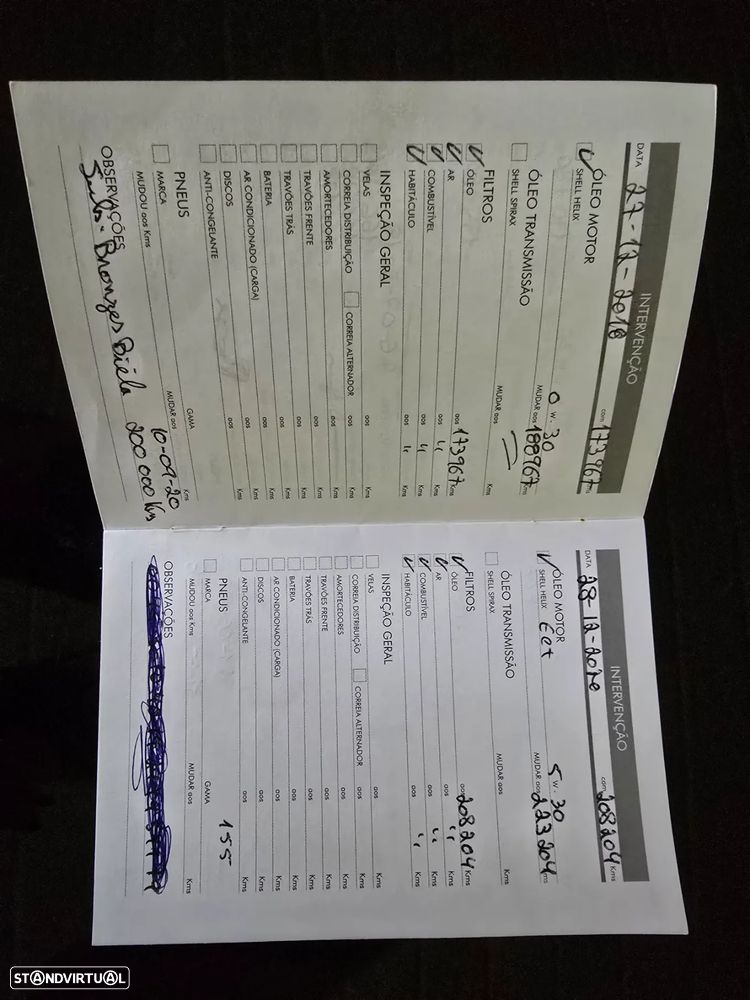 INTERVENÇÃO
DATA 27-12-2018 com 173967 Kms
ÓLEO MOTOR 0 W. 30
SHELL HELIX MUDAR aos 188967 Kms
ÓLEO TRANSMISSÃO
SHELL SPIRAX MUDAR aos Kms
FILTROS
ÓLEO aos 173967 Kms
AR aos " Kms
COMBUSTÍVEL aos " Kms
HABITÁCULO aos " Kms
INSPEÇÃO GERAL
VELAS aos Kms
CORREIA DISTRIBUIÇÃO CORREIA ALTERNADOR aos Kms
AMORTECEDORES aos Kms
TRAVÕES FRENTE aos Kms
TRAVÕES TRÁS aos Kms
BATERIA aos Kms
AR CONDICIONADO (CARGA) aos Kms
DISCOS aos Kms
ANTI-CONGELANTE aos Kms
PNEUS
MARCA GAMA
MUDOU aos Kms MUDAR aos Kms
OBSERVAÇÕES 10-09-20
Bronzes Biéla 200 000 Km
INTERVENÇÃO
DATA 28-12-2020 com 208204 Kms
ÓLEO MOTOR 5 W. 30
SHELL HELIX Ect MUDAR aos 223204 Kms
ÓLEO TRANSMISSÃO
SHELL SPIRAX MUDAR aos Kms
FILTROS
ÓLEO aos 208204 Kms
AR aos " Kms
COMBUSTÍVEL aos " Kms
HABITÁCULO aos " Kms
INSPEÇÃO GERAL
VELAS aos Kms
CORREIA DISTRIBUIÇÃO CORREIA ALTERNADOR aos Kms
AMORTECEDORES aos Kms
TRAVÕES FRENTE aos Kms
TRAVÕES TRÁS aos Kms
BATERIA aos Kms
AR CONDICIONADO (CARGA) aos Kms
DISCOS aos Kms
ANTI-CONGELANTE aos Kms
PNEUS 155
MARCA GAMA
MUDOU aos Kms MUDAR aos Kms
OBSERVAÇÕES
STANDVIRTUAL